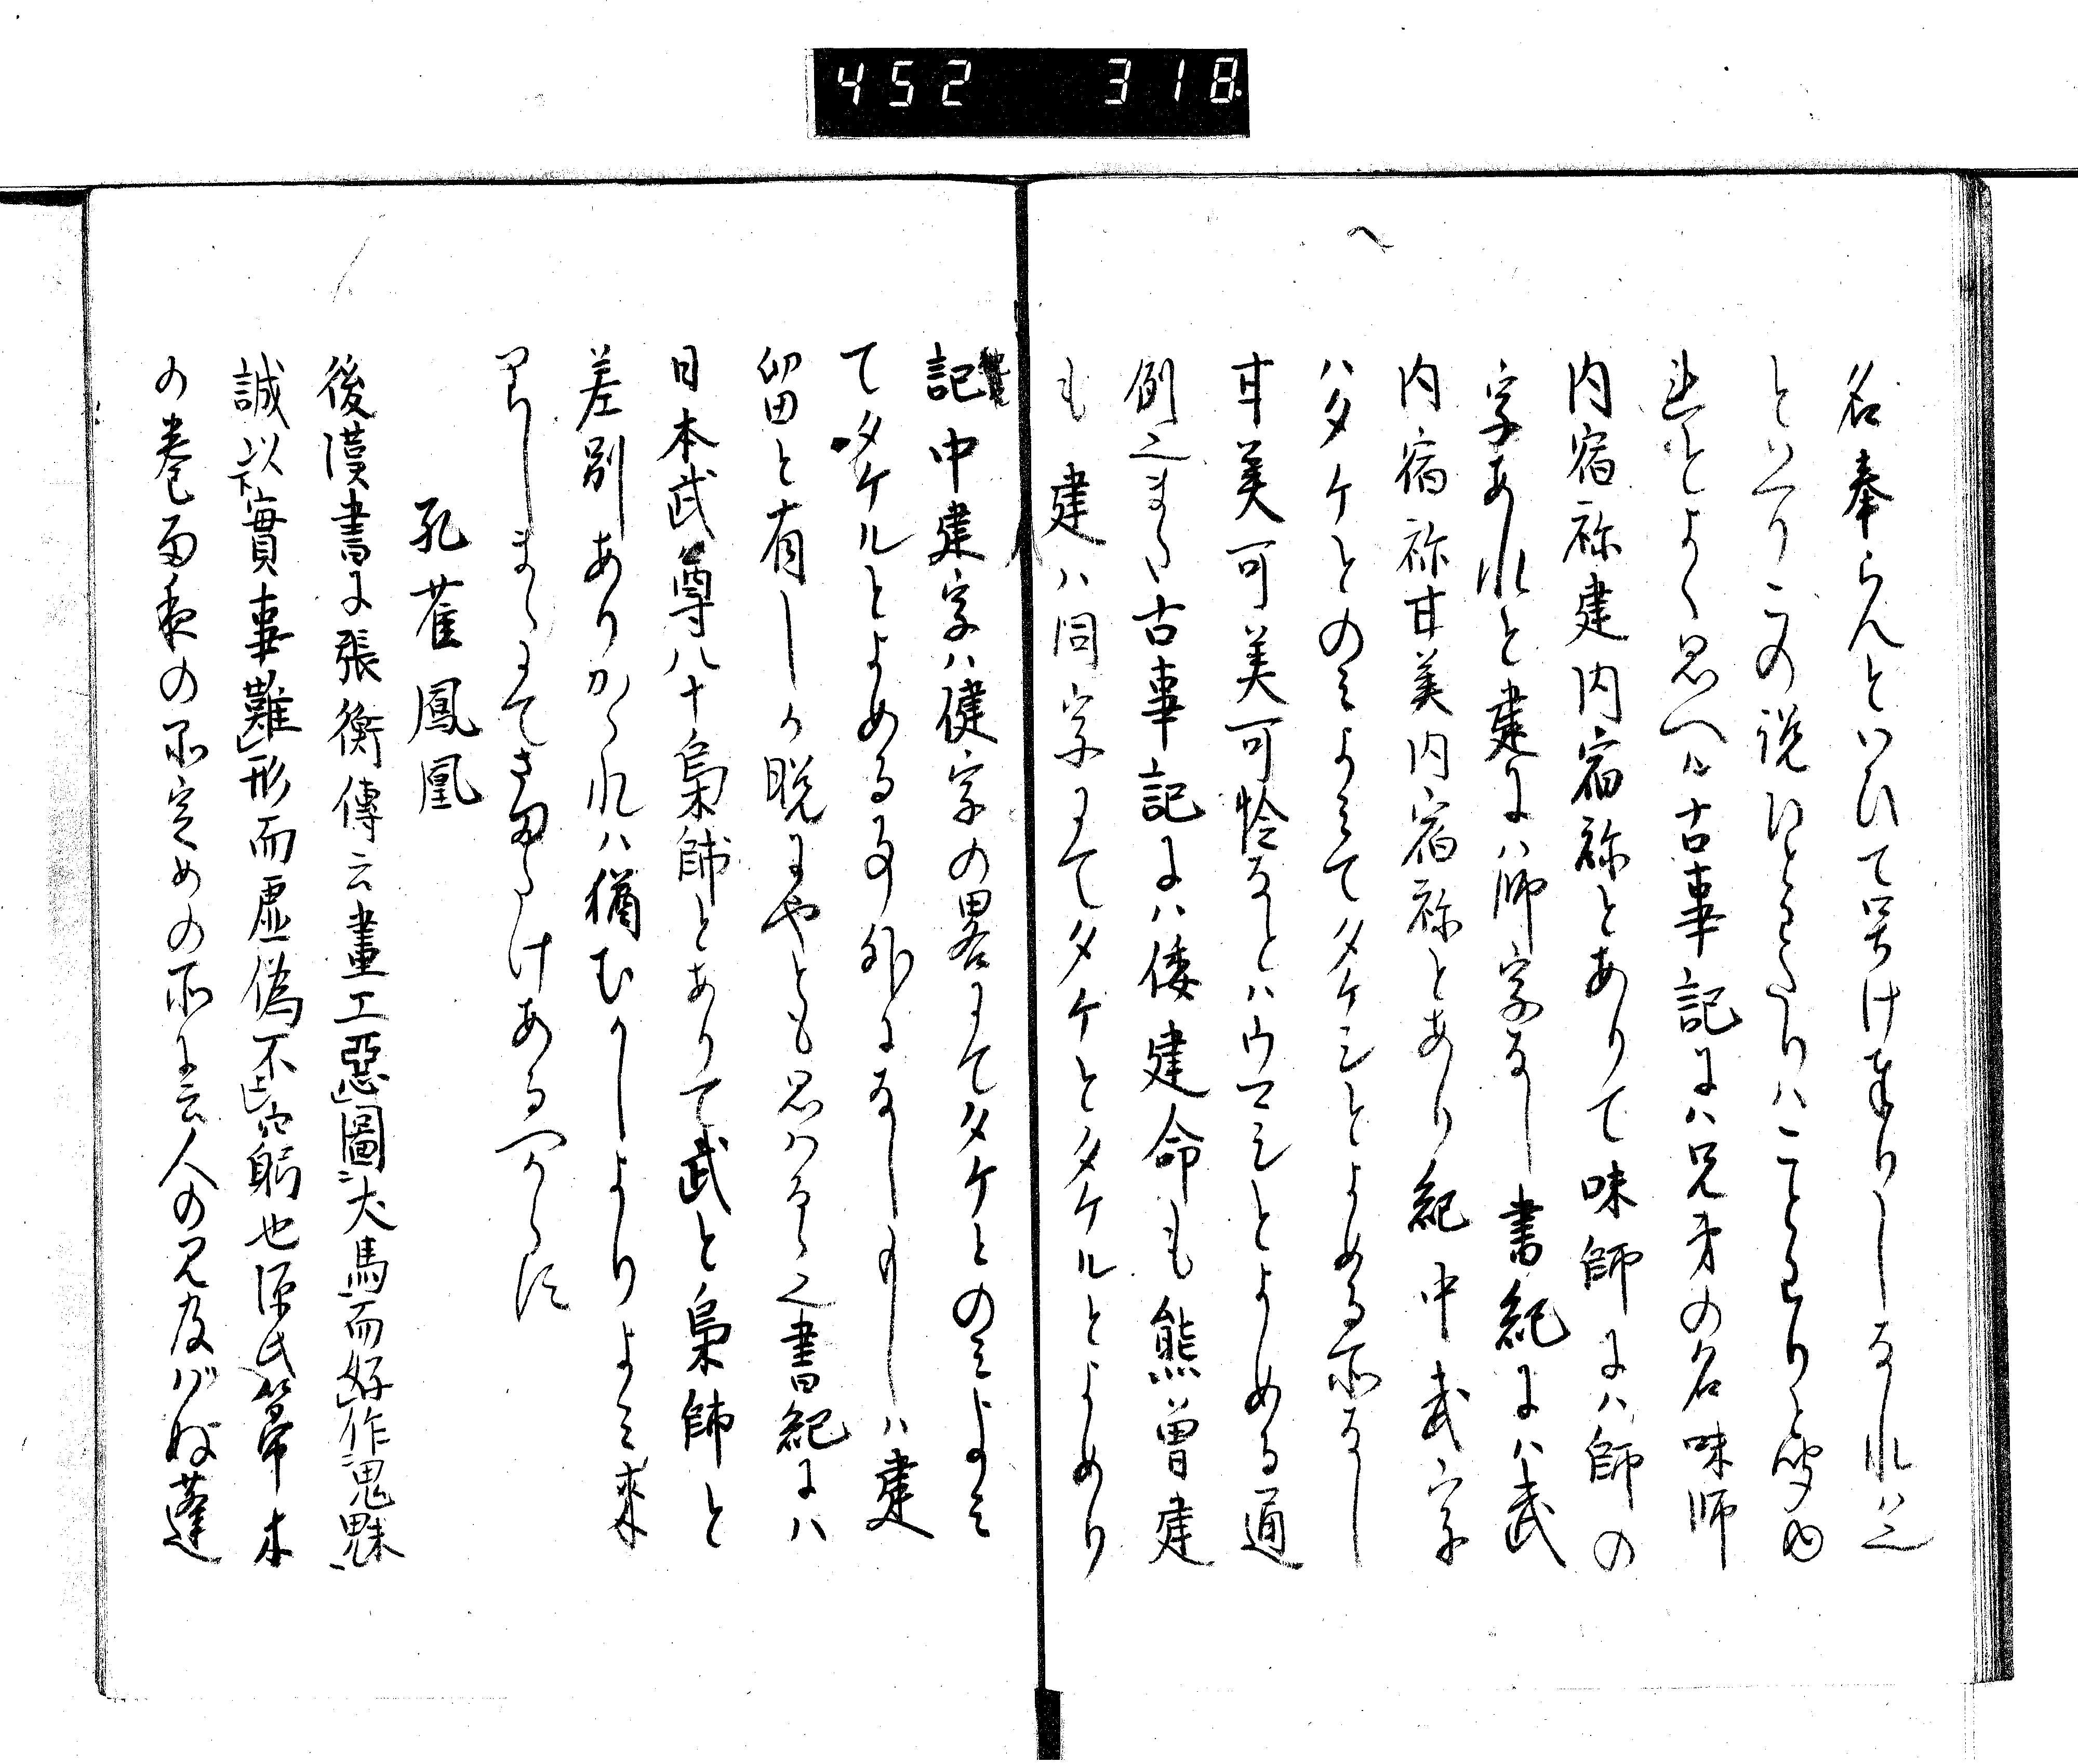 452 318
名奉らんといひて呉けまりしなれは也
といへりこの説ひとわたりはことわりと聞ゆ
れとよく思へは古事記には兄弟の名味師
内宿祢建内宿祢とありて味師には師の
字あれと建には師字なし書紀には武
内宿祢甘美内宿祢とあり紀中武字
ハタケとのミよミてタケシとよめる所なし
甘美可美可怜なとハウマシとよめる通
例也また古事記には倭建命も熊曽建
も建ハ同字にてタケとタケルとよめり
記中建字ハ健字の畧にてタケとのミよミ
てタケルとよめる事外になしもしハ建
留と有しか脱にやとも思はるゝ也書紀には
日本武尊八十梟帥とありて武と梟帥と
差別ありかゝれハ猶むかしよりよミ来
りしまゝにてさまたけあるへからす
孔雀鳳凰
後漢書に張衡傳云畫工惡圖犬馬而好作鬼魅
誠以實事難形而虚偽不窮也源氏箒木
の巻雨夜の品定めの所に云人の見及ばぬ蓬